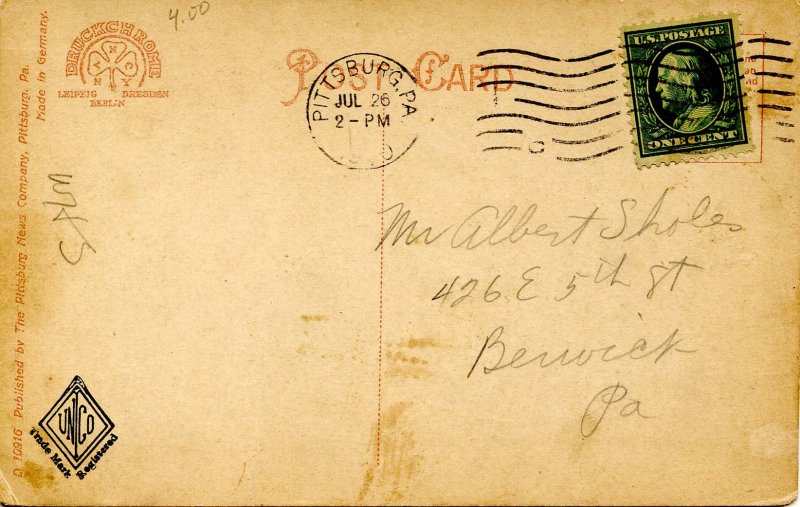 4.00
DRUCKCHROMT
T N C
N Y
LEIPZIG DRESDEN
BERLIN
POST CARD
PITTSBURG, PA.
JUL 26
2-PM
U.S. POSTAGE
ONE CENT
Mr Albert Sholes
426 E 5th St
Berwick
Pa
D 10916 Published by The Pittsburg News Company, Pittsburg, Pa.
Made in Germany.
UNCO
Trade Mark Registered